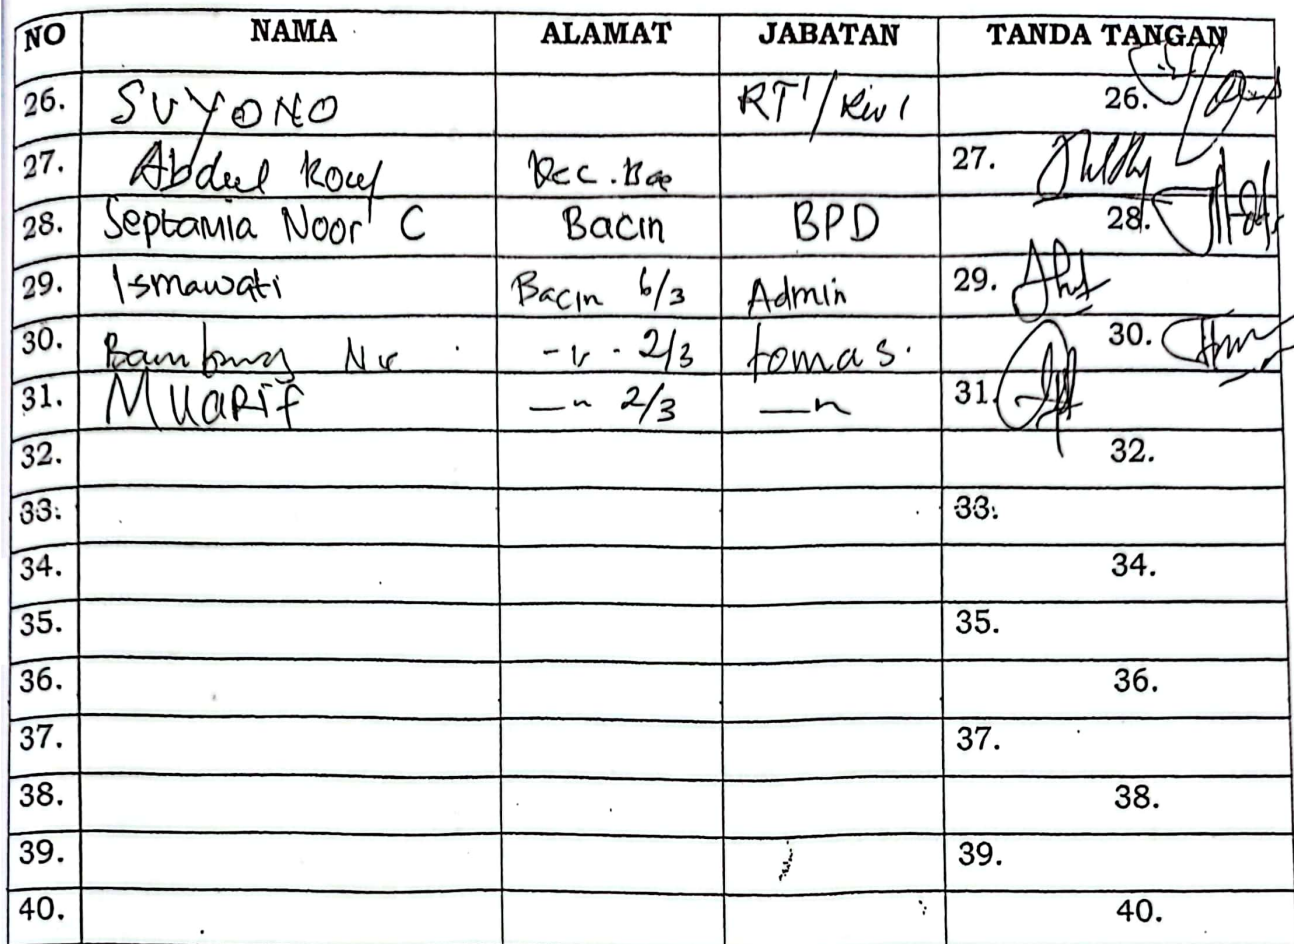 NO NAMA ALAMAT JABATAN TANDA TANGAN
26. SUYONO RT 1/RW 1 26.
27. Abdul Kec. Bae 27.
28. Septamia Noor C Bacin BPD 28.
29. Ismawati Bacin 6/3 Admin 29.
30. Bambang - 2/3 tomas. 30.
31. MUARIF —〃 2/3 —〃 31.
32. 32.
33. 33.
34. 34.
35. 35.
36. 36.
37. 37.
38. 38.
39. 39.
40. 40.